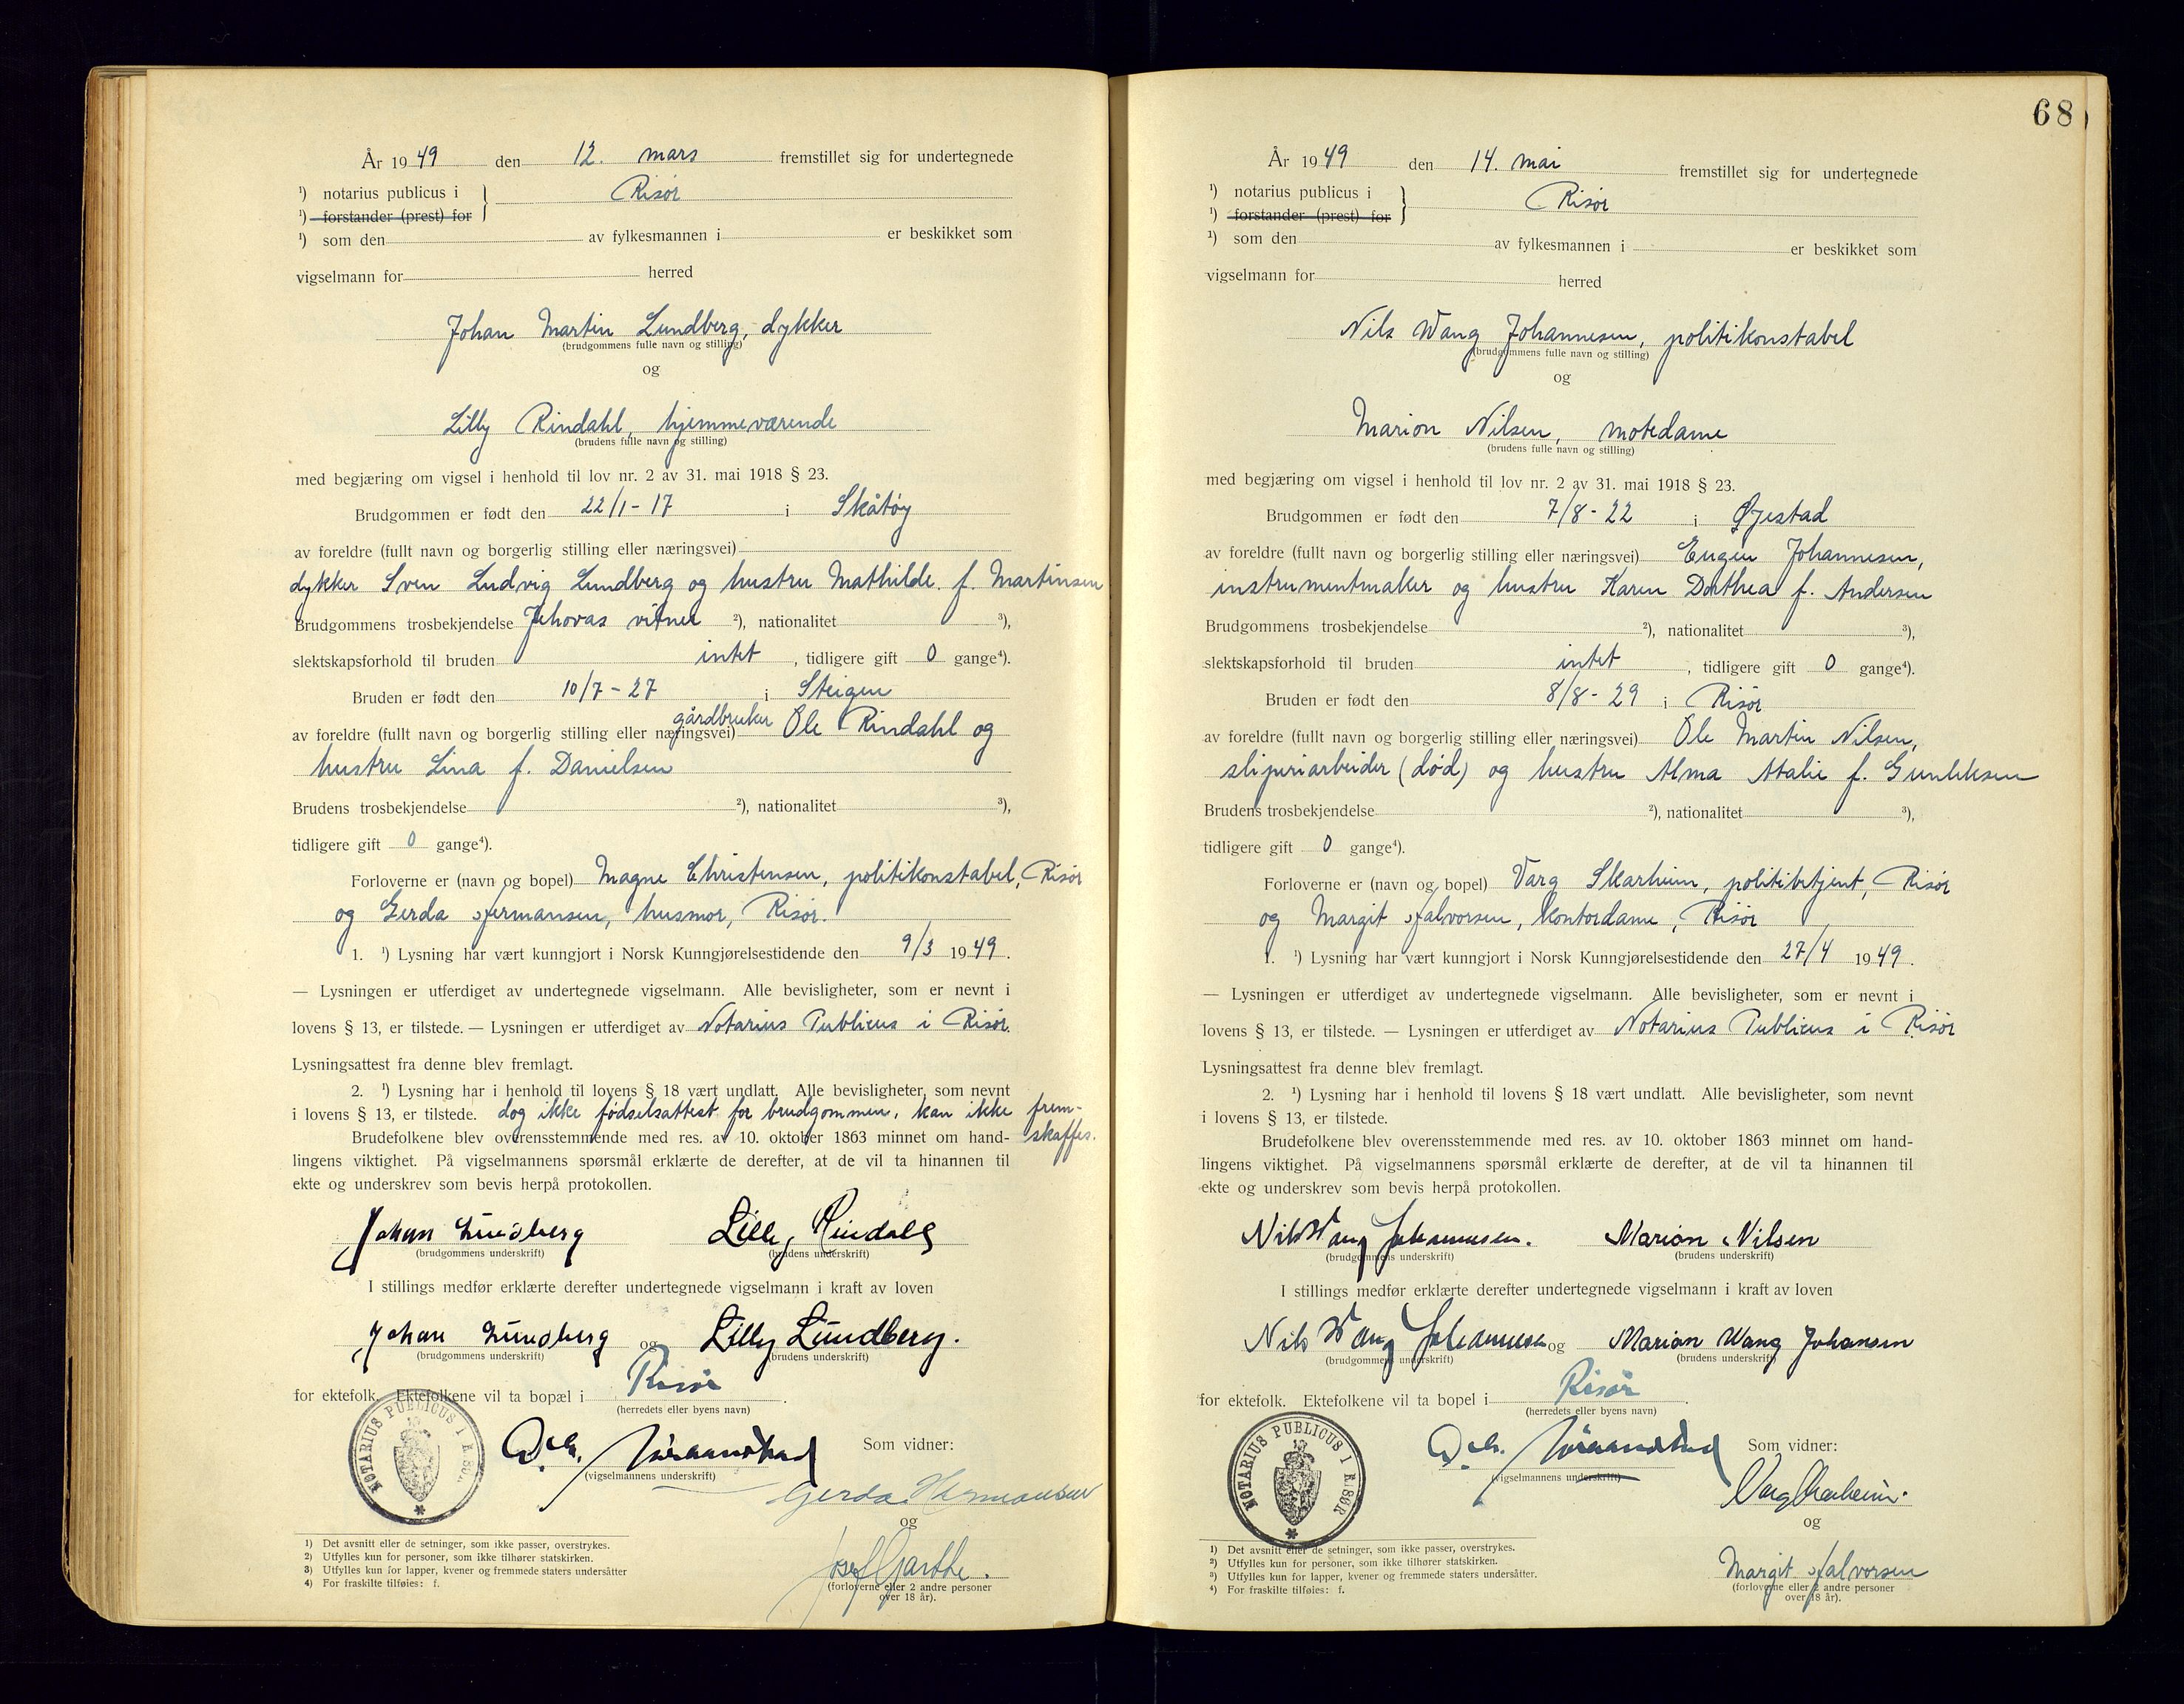 År 1949 den 12. mars fremstillet sig for undertegnede
¹) notarius publicus i } Risør
¹) forstander (prest) for
¹) som den av fylkesmannen i er beskikket som
vigselmann for herred
Johan Martin Lundberg, dykker
(brudgommens fulle navn og stilling)
og
Lilly Rindahl, hjemmeværende
(brudens fulle navn og stilling)
med begjæring om vigsel i henhold til lov nr. 2 av 31. mai 1918 § 23.
Brudgommen er født den 22/1-17 i Skåtøy
av foreldre (fullt navn og borgerlig stilling eller næringsvei)
dykker Sven Ludvig Lundberg og hustru Mathilde f. Martinsen
Brudgommens trosbekjendelse Jehovas vitner ²), nationalitet ³),
slektskapsforhold til bruden intet, tidligere gift 0 gange⁴).
Bruden er født den 10/7-27 i Steigen
av foreldre (fullt navn og borgerlig stilling eller næringsvei) gårdbruker Ole Rindahl og
hustru Lina f. Danielsen
Brudens trosbekjendelse ²), nationalitet ³),
tidligere gift 0 gange⁴).
Forloverne er (navn og bopel) Magne Christensen, politikonstabel, Risør
og Gerda Hermansen, husmor, Risør.
1. ¹) Lysning har vært kunngjort i Norsk Kunngjørelsestidende den 9/3 1949.
— Lysningen er utferdiget av undertegnede vigselmann. Alle bevisligheter, som er nevnt i
lovens § 13, er tilstede. — Lysningen er utferdiget av Notarius Publicus i Risør.
Lysningsattest fra denne blev fremlagt.
2. ¹) Lysning har i henhold til lovens § 18 vært undlatt. Alle bevisligheter, som nevnt
i lovens § 13, er tilstede. dog ikke fødselsattest for brudgommen, kan ikke frem-
skaffes.
Brudefolkene blev overensstemmende med res. av 10. oktober 1863 minnet om hand-
lingens viktighet. På vigselmannens spørsmål erklærte de derefter, at de vil ta hinannen til
ekte og underskrev som bevis herpå protokollen.
Johan Lundberg Lilly Rindahl
(brudgommens underskrift) (brudens underskrift)
I stillings medfør erklærte derefter undertegnede vigselmann i kraft av loven
Johan Lundberg og Lilly Lundberg.
(brudgommens underskrift) (brudens underskrift)
for ektefolk. Ektefolkene vil ta bopæl i Risør.
(herredets eller byens navn)
NOTARIUS PUBLICUS I RISØR
(vigselmannens underskrift)
Som vidner:
Gerda Hermansen
og
Josef Garthe.
(forloverne eller 2 andre personer
over 18 år).
1) Det avsnitt eller de setninger, som ikke passer, overstrykes.
2) Utfylles kun for personer, som ikke tilhører statskirken.
3) Utfylles kun for lapper, kvener og fremmede staters undersåtter
4) For fraskilte tilføies: f.
68
År 1949 den 14. mai fremstillet sig for undertegnede
¹) notarius publicus i } Risør
¹) forstander (prest) for
¹) som den av fylkesmannen i er beskikket som
vigselmann for herred
Nils Wang Johannesen, politikonstabel
(brudgommens fulle navn og stilling)
og
Marion Nilsen, motedame
(brudens fulle navn og stilling)
med begjæring om vigsel i henhold til lov nr. 2 av 31. mai 1918 § 23.
Brudgommen er født den 7/8-22 i Øjestad
av foreldre (fullt navn og borgerlig stilling eller næringsvei) Eugen Johannesen,
instrumentmaker og hustru Karen Dorthea f. Andersen
Brudgommens trosbekjendelse ²), nationalitet ³),
slektskapsforhold til bruden intet, tidligere gift 0 gange⁴).
Bruden er født den 8/8-29 i Risør
av foreldre (fullt navn og borgerlig stilling eller næringsvei) Ole Martin Nilsen,
sliperiarbeider (død) og hustru Alma Atalie f. Gunleksen
Brudens trosbekjendelse ²), nationalitet ³),
tidligere gift 0 gange⁴).
Forloverne er (navn og bopel) Varg Skarheim, politibetjent, Risør
og Margit Halvorsen, kontordame, Risør
1. ¹) Lysning har vært kunngjort i Norsk Kunngjørelsestidende den 27/4 1949.
— Lysningen er utferdiget av undertegnede vigselmann. Alle bevisligheter, som er nevnt i
lovens § 13, er tilstede. — Lysningen er utferdiget av Notarius Publicus i Risør
Lysningsattest fra denne blev fremlagt.
2. ¹) Lysning har i henhold til lovens § 18 vært undlatt. Alle bevisligheter, som nevnt
i lovens § 13, er tilstede.
Brudefolkene blev overensstemmende med res. av 10. oktober 1863 minnet om hand-
lingens viktighet. På vigselmannens spørsmål erklærte de derefter, at de vil ta hinannen til
ekte og underskrev som bevis herpå protokollen.
Nils Wang Johannesen. Marion Nilsen
(brudgommens underskrift) (brudens underskrift)
I stillings medfør erklærte derefter undertegnede vigselmann i kraft av loven
Nils Wang Johannesen og Marion Wang Johansen
(brudgommens underskrift) (brudens underskrift)
for ektefolk. Ektefolkene vil ta bopel i Risør.
(herredets eller byens navn)
NOTARIUS PUBLICUS I RISØR
(vigselmannens underskrift)
Som vidner:
Varg Skarheim.
og
Margit Halvorsen
(forloverne eller 2 andre personer
over 18 år).
1) Det avsnitt eller de setninger, som ikke passer, overstrykes.
2) Utfylles kun for personer, som ikke tilhører statskirken.
3) Utfylles kun for lapper, kvener og fremmede staters undersåtter.
4) For fraskilte tilføies: f.